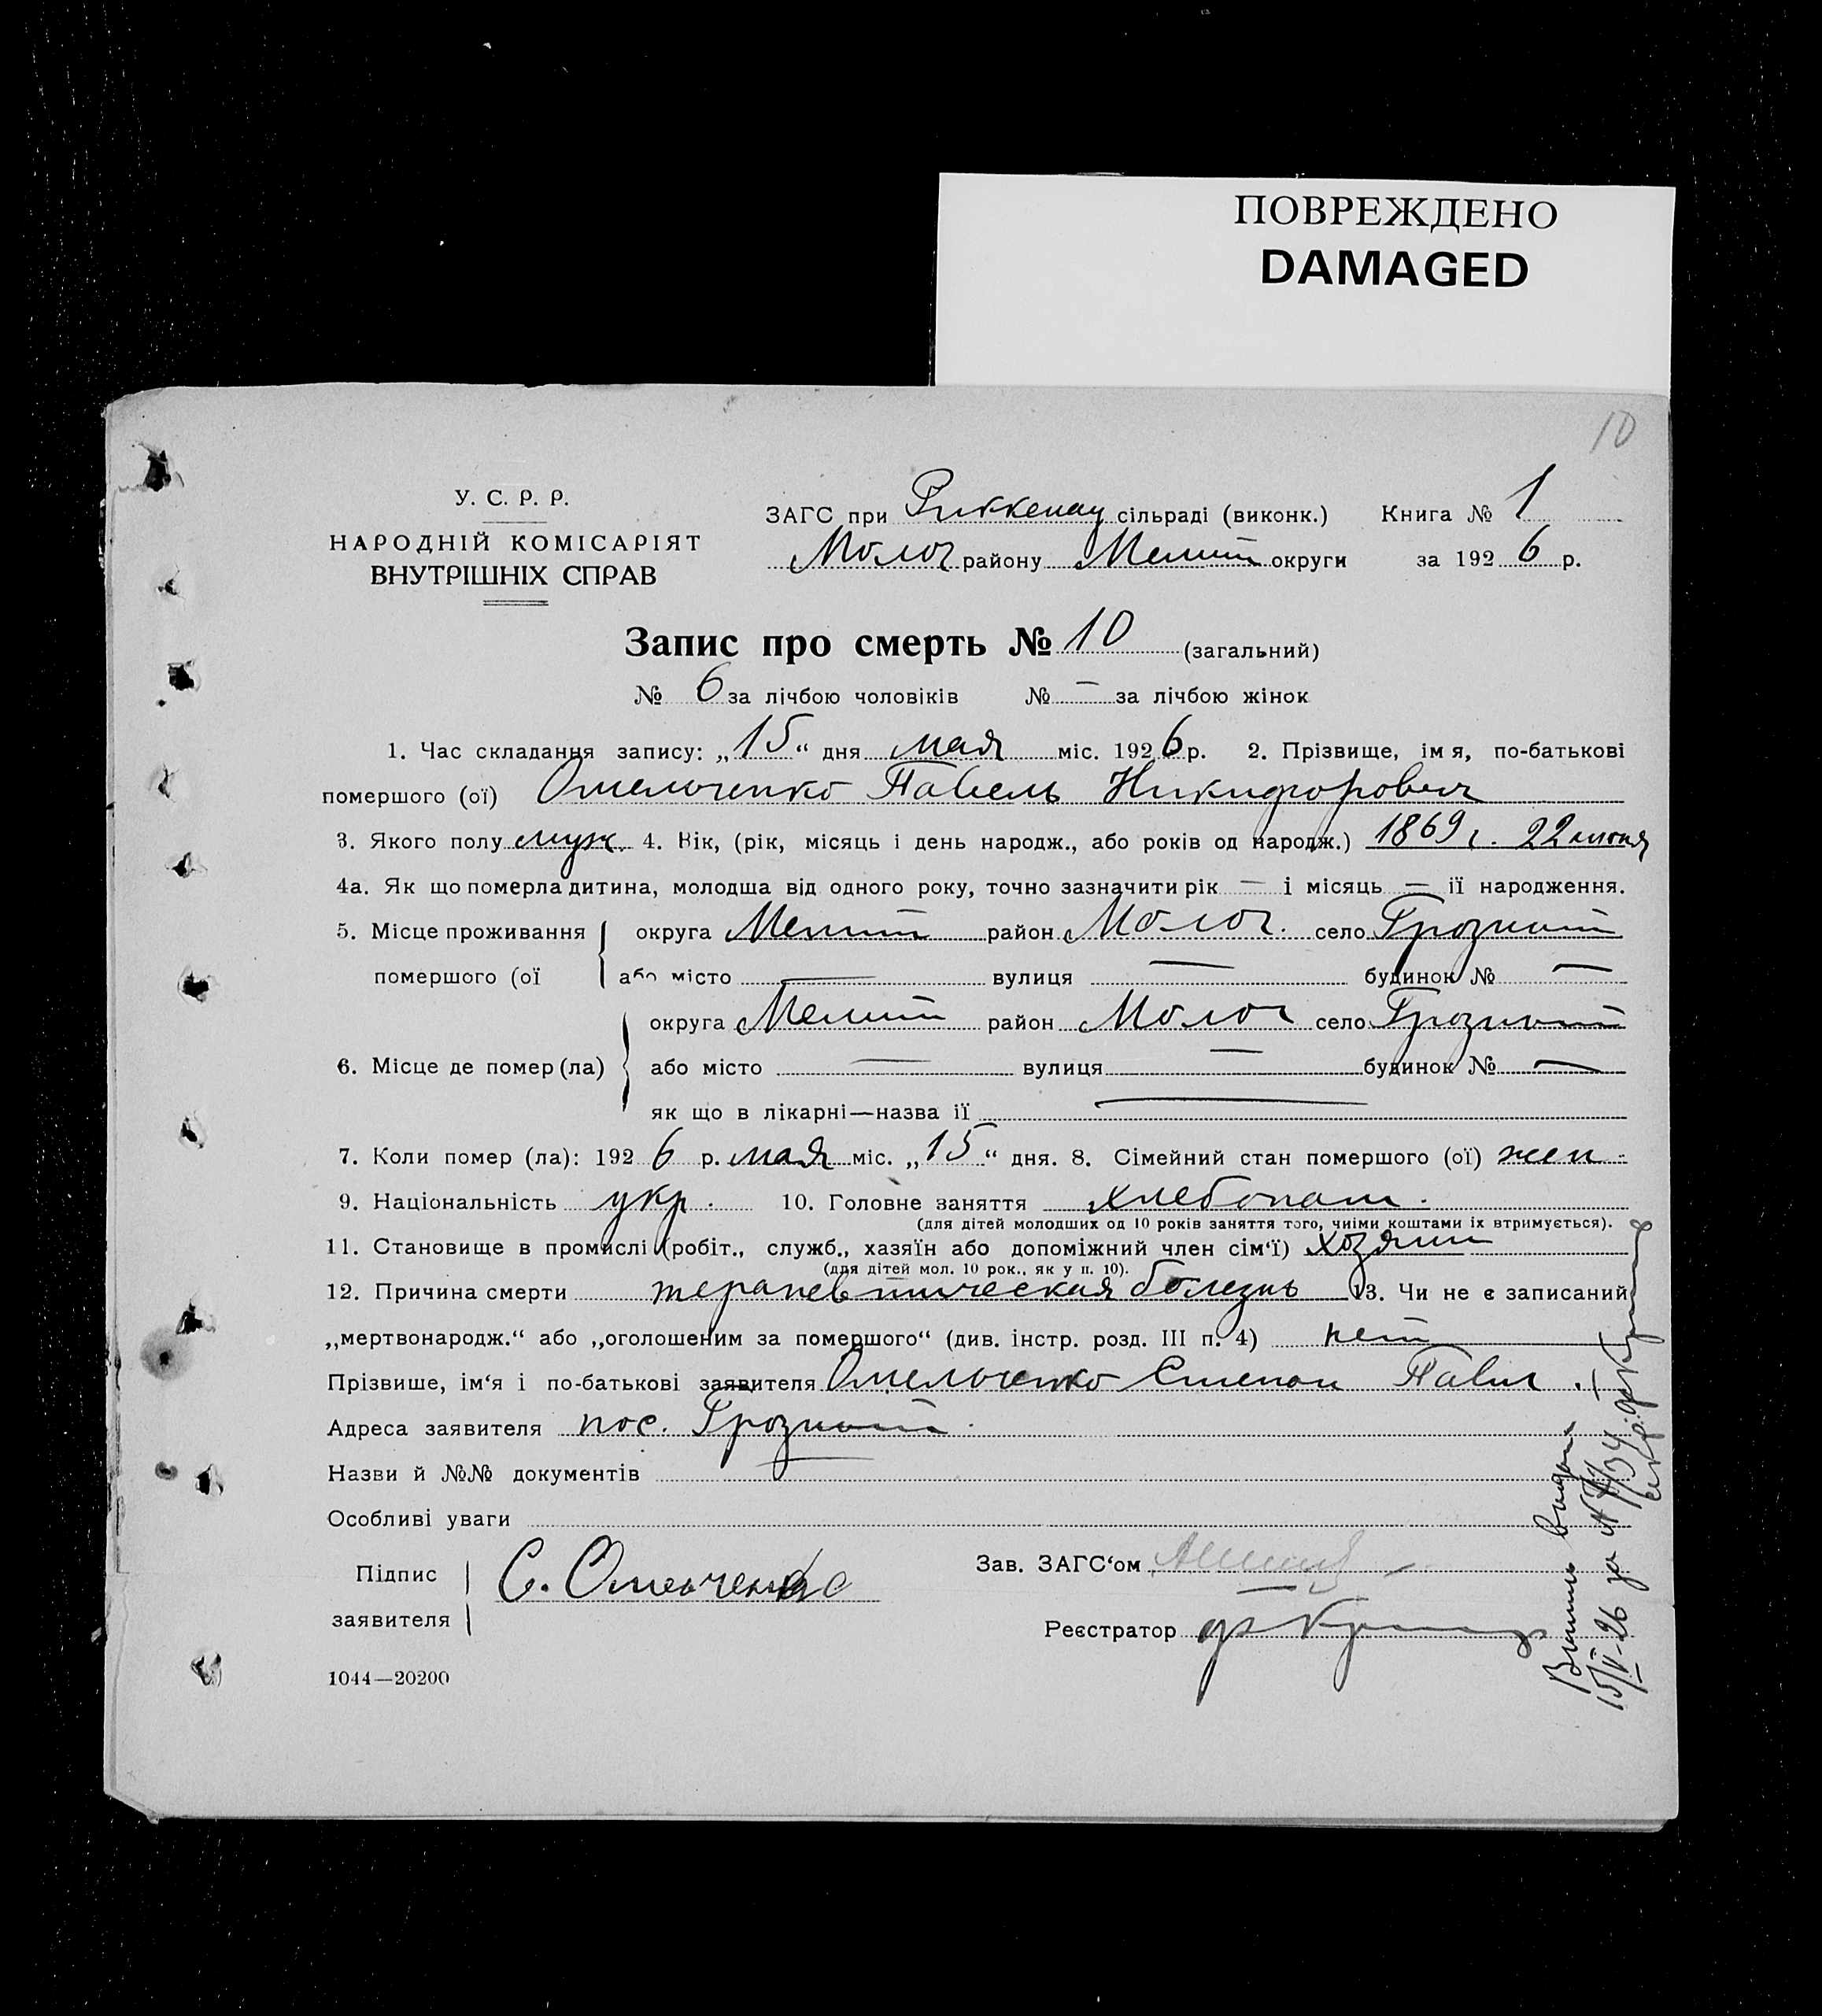 ПОВРЕЖДЕНО
DAMAGED
10
У. С. Р. Р.
НАРОДНІЙ КОМІСАРІЯТ
ВНУТРІШНІХ СПРАВ
ЗАГС при Риккенау сільраді (виконк.) Книга № 1
Молоч району Мелит округи за 1926 р.
Запис про смерть № 10 (загальний)
№ 6 за лічбою чоловіків № — за лічбою жінок
1. Час складання запису: „15“ дня мая міс. 1926 р. 2. Прізвище, імя, по-батькові
помершого (ої) Омельченко Павель Никифорович
3. Якого полу муж. 4. Вік, (рік, місяць і день народж., або років од народж.) 1869 г. 22 июня
4а. Як що померла дитина, молодша від одного року, точно зазначити рік — і місяць — її народження.
5. Місце проживання округа Мелит район Молоч. село Грозный
помершого (ої або місто — вулиця — будинок № —
округа Мелит район Молоч село Грозный
6. Місце де помер (ла) або місто — вулиця — будинок № —
як що в лікарні—назва її —
7. Коли помер (ла): 1926 р. мая міс. „15“ дня. 8. Сімейний стан помершого (ої) жен.
9. Національність укр. 10. Головне заняття хлебопаш.
(для дітей молодших од 10 років заняття того, чиїми коштами їх втримується).
11. Становище в промислі (робіт., служб., хазяїн або допоміжний член сім‘ї) хозяин
(для дітей мол. 10 рок., як у п. 10).
12. Причина смерти терапевтическая болезнь 13. Чи не є записаний
„мертвонародж.“ або „оголошеним за помершого“ (див. інстр. розд. III п. 4) нет
Прізвише, ім‘я і по-батькові заявителя Омельченко Степан Павл.
Адреса заявителя пос. Грозный.
Назви й №№ документів
Особливі уваги
Підпис
заявителя
С. Омельченко
Зав. ЗАГС‘ом
Реєстратор
1044—20200
Выпись выдана
15/V-26 за №